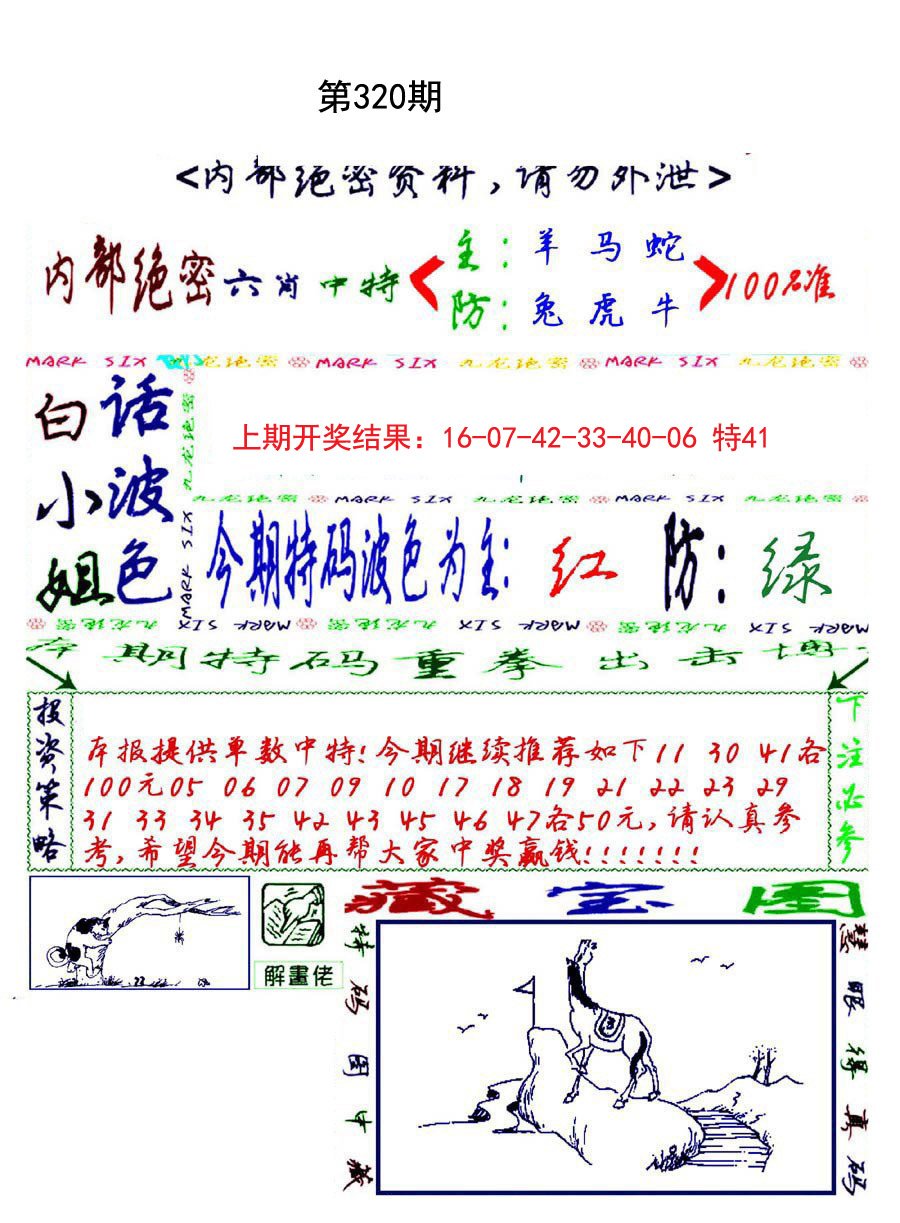 第320期
<内部绝密资料，请勿外泄>
内部绝密六肖中特
主：羊 马 蛇
防：兔 虎 牛
100%准
MARK SIX 九龙绝密 MARK SIX 九龙绝密 MARK SIX 九龙绝密
白话
小波
姐色
九龙绝密
MARK SIX
上期开奖结果：16-07-42-33-40-06 特41
九龙绝密 MARK SIX 九龙绝密 MARK SIX 九龙绝密
今期特码波色为主：红 防：绿
九龙绝密 MARK SIX 九龙绝密 MARK SIX 九龙绝密 MARK SIX
期特码重拳出击
投资策略
本报提供单数中特！今期继续推荐如下11 30 41各
100元05 06 07 09 10 17 18 19 21 22 23 29
31 33 34 35 42 43 45 46 47各50元，请认真参
考，希望今期能再帮大家中奖赢钱！！！！！！！
下注必参
解畫佬
藏宝图
特码图中藏
慧眼得真码